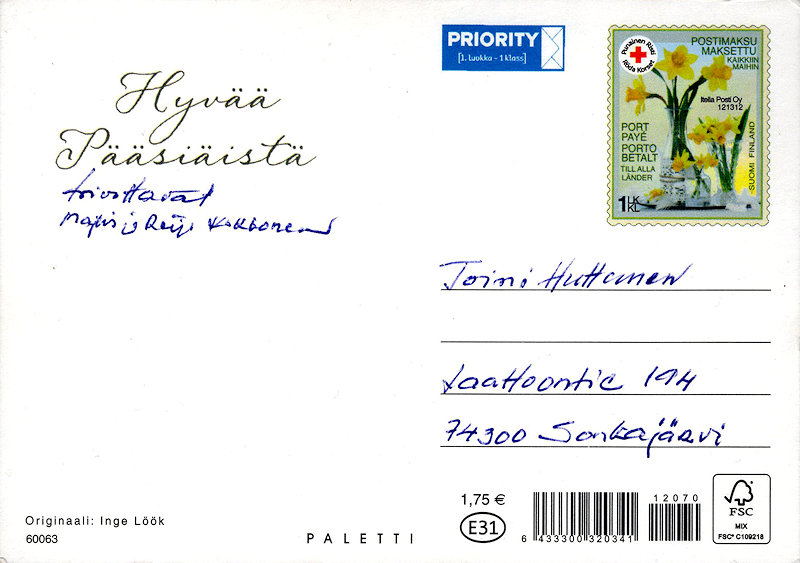 PRIORITY
[1. luokka - 1 klass]
Punainen Risti
Röda Korset
POSTIMAKSU
MAKSETTU
KAIKKIIN
MAIHIN
Itella Posti Oy
121312
PORT
PAYÉ
PORTO
BETALT
TILL ALLA
LÄNDER
SUOMI FINLAND
1 LK
KL
Hyvää
Pääsiäistä
toivottavat
ja Reijo
Toini Huttunen
Laattoontie 194
74300 Sonkajärvi
1,75 €
E31
6 433300 320341
12070
FSC
MIX
FSC® C109218
Originaali: Inge Löök
60063
PALETTI